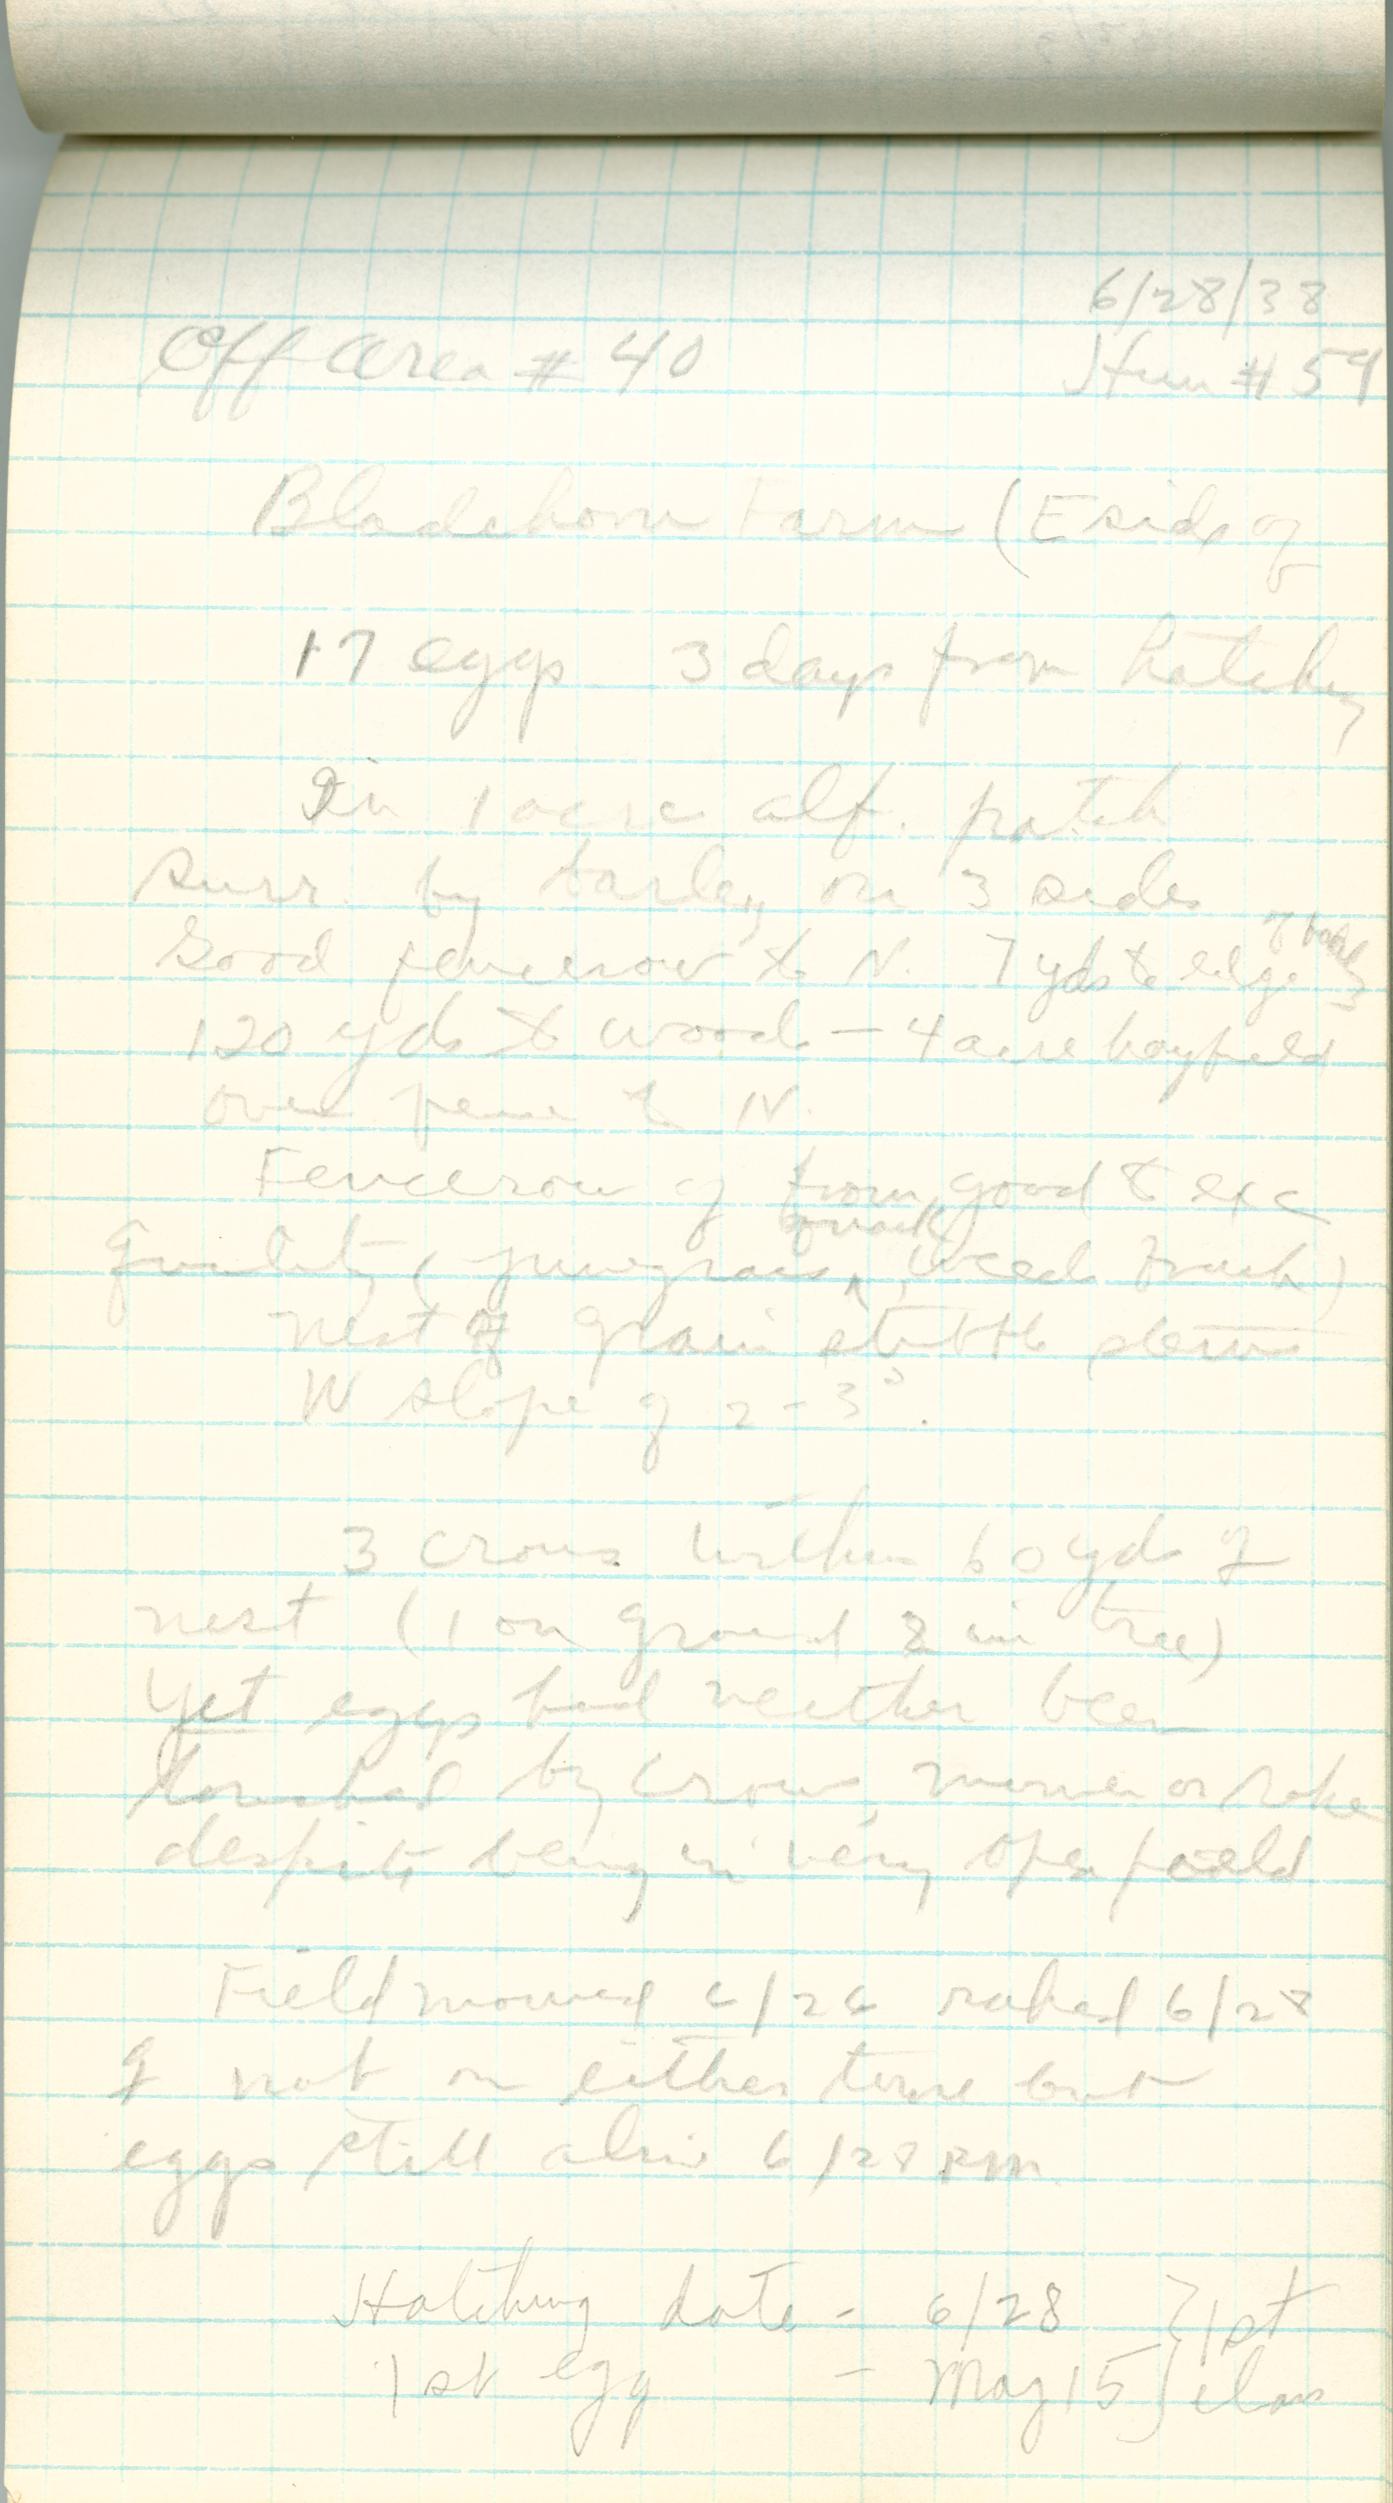 6/28/38
Off area # 40 Hun # 54
Bladehorn Farm (E side of
17 eggs 3 days from hatching
In 1 acre alf. patch
Surr. by barley on 3 sides
Good fencerow to N. 7 yds to edge of barley
120 yds to woods - 4 acre hayfield
over fence to N.
Fencerow of from good to exc
quality (junegrass, quack, weeds brush)
Nest of grain stubble stems
W slope of 2-3°.
3 crows within 60 yds of
nest (1 on ground 2 in tree)
Yet eggs had neither been
touched by crows, mower or rake
despite being in very open field
Field mowed 6/26 raked 6/28
♀ not on either time but
eggs still alive 6/28 PM
Hatching date - 6/28 } 1st
1st egg - May 15 } clas